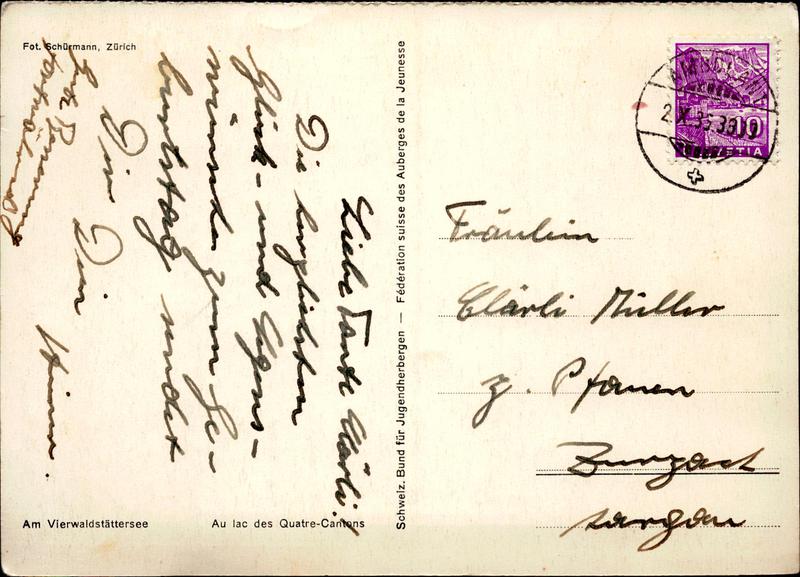 Fot. Schürmann, Zürich
Liebe Tante Clärli!
Die herzlichsten
Glück- und Segens-
wünsche zum Ge-
burtstag sendet
Dir Dein
Gute
Am Vierwaldstättersee
Au lac des Quatre-Cantons
Schweiz. Bund für Jugendherbergen — Fédération suisse des Auberges de la Jeunesse
10
HELVETIA
Fräulein
Clärli Müller
z. Pfauen
Zurzach
Aargau